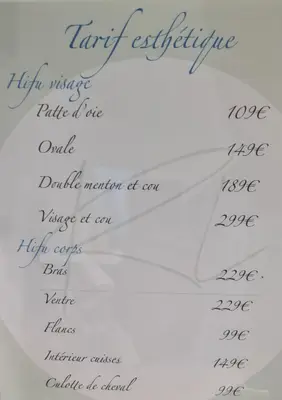 Tarif esthétique
Hifu visage
Patte d'oie 109€
Ovale 149€
Double menton et cou 189€
Visage et cou 299€
Hifu corps
Bras 229€.
Ventre 229€
Flancs 99€
Intérieur cuisses 149€
Culotte de cheval 99€